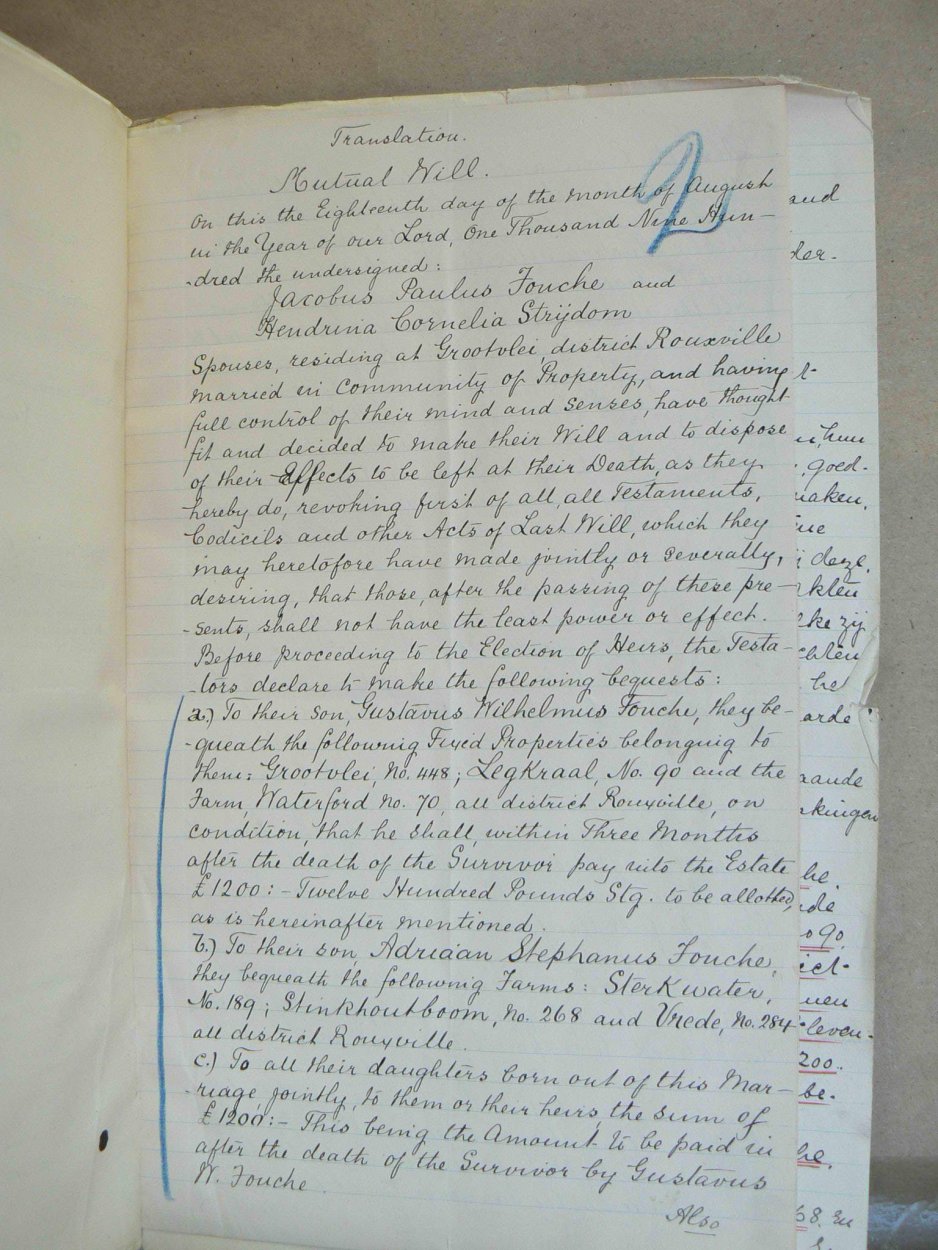 Translation.
2
Mutual Will.
On this the Eighteenth day of the month of August
in the Year of our Lord, One Thousand Nine Hun-
-dred the undersigned:
Jacobus Paulus Fouche and
Hendrina Cornelia Strijdom
Spouses, residing at Grootvlei, district Rouxville
married in Community of Property, and having
full control of their mind and senses, have thought
fit and decided to make their Will and to dispose
of their Effects to be left at their Death, as they
hereby do, revoking first of all, all Testaments,
Codicils and other Acts of Last Will, which they
may heretofore have made jointly or severally,
desiring, that those, after the passing of these pre-
-sents, shall not have the least power or effect.
Before proceeding to the Election of Heirs, the Testa-
-tors declare to make the following bequests:
a.) To their son, Gustavus Wilhelmus Fouche, they be-
-queath the following Fixed Properties belonging to
them: Grootvlei, No. 448; LegKraal, No. 90 and the
Farm, Waterford No. 70, all district Rouxville, on
condition, that he shall, within Three Months
after the death of the Survivor pay into the Estate
£1200:- Twelve Hundred Pounds Stg. to be allotted,
as is hereinafter mentioned.
b.) To their son, Adriaan Stephanus Fouche,
they bequeath the following Farms: Sterkwater,
No. 189; Stinkhoutboom, No. 268 and Vrede, No. 284
all district Rouxville.
c.) To all their daughters born out of this Mar-
-riage, jointly, to them or their heirs, the sum of
£1200:- This being the Amount to be paid in
after the death of the Survivor by Gustavus
W. Fouche
Also
aud
der-
hun
goed-
maken,
deze
zij
he
arde
aande
he
de
90
ict-
uen
leven-
200.
be-
he.
68. En